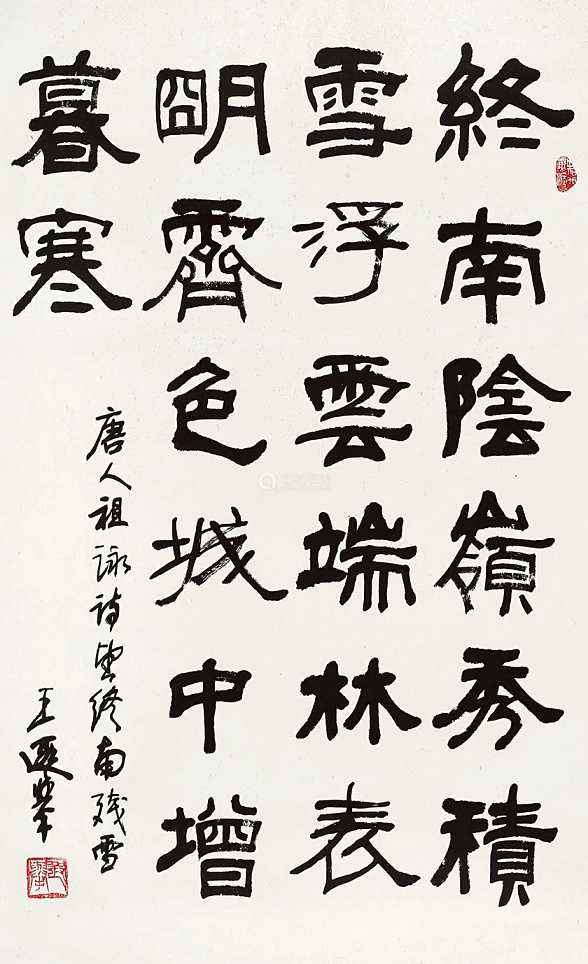 終南陰嶺秀積
雪浮雲端林表
明霽色城中增
暮寒
唐人祖詠詩望終南殘雪
王遐舉